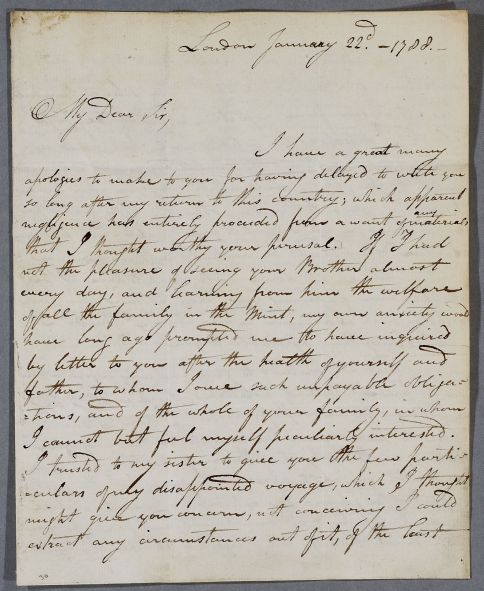 London January 22d. – 1788. –
My Dear Sir,
I have a great many
apologies to make to you for having delayed to write you
so long after my return to this country; which apparent
negligence has entirely proceeded from a want of any materials
that I thought worthy your perusal. If I had
not the pleasure of seeing your Brother almost
every day, and learning from him the welfare
of all the family in the Mint, my own anxiety would
have long ago prompted me to have inquired
by letter to you after the health of yourself and
father, to whom I owe such unpayable obliga=
=tions, and of the whole of your family, in whom
I cannot but feel myself peculiarly interested.
I trusted to my sister to give you the few parti=
=culars of my disappointed voyage, which I thought
might give you concern, not conceiving I could
extract any circumstances out of it, of the least